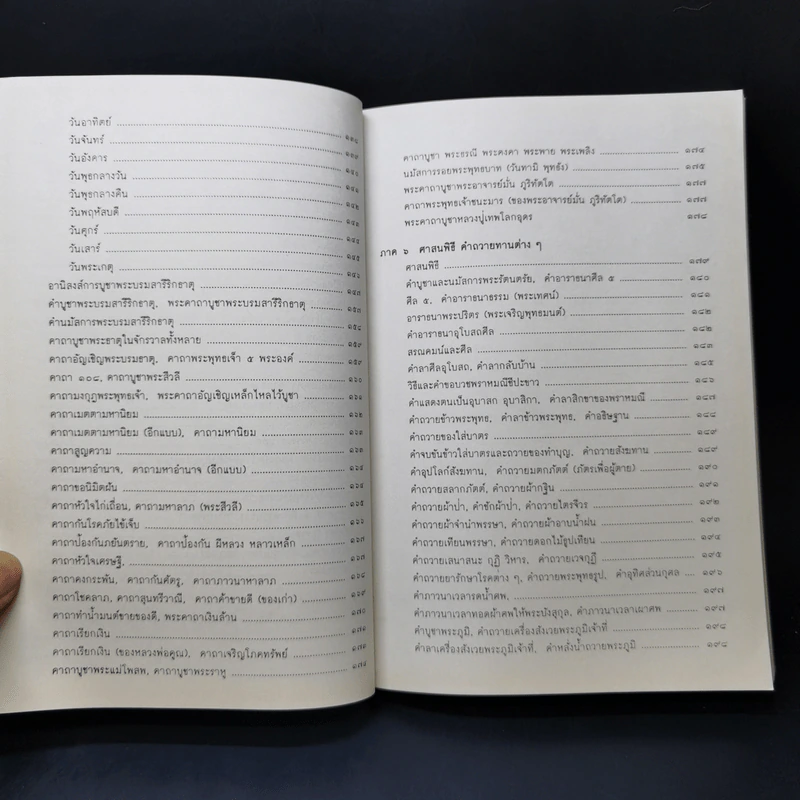 วันอาทิตย์ ๑๓๘
วันจันทร์ ๑๓๙
วันอังคาร ๑๔๐
วันพุธกลางวัน ๑๔๑
วันพุธกลางคืน ๑๔๒
วันพฤหัสบดี ๑๔๓
วันศุกร์ ๑๔๔
วันเสาร์ ๑๔๕
วันพระเกตุ ๑๔๖
อานิสงส์การบูชาพระบรมสารีริกธาตุ
คำบูชาพระบรมสารีริกธาตุ, พระคาถาบูชาพระบรมสารีริกธาตุ
คำนมัสการพระบรมสารีริกธาตุ
คาถาบูชาพระธาตุในจักรวาลทั้งหลาย
คาถาอัญเชิญพระบรมธาตุ, คาถาพระพุทธเจ้า ๕ พระองค์ ๑๕๙
คาถา ๑๐๘, คาถาบูชาพระสิวลี ๑๖๐
คาถามงกุฎพระพุทธเจ้า, พระคาถาอัญเชิญเหล็กไหลไว้บูชา
คาถาเมตตามหานิยม
คาถาเมตตามหานิยม (อีกแบบ), คาถามหานิยม
คาถาสูญความ
คาถามหาอำนาจ, คาถามหาอำนาจ (อีกแบบ)
คาถาขอนิมิตฝัน
คาถาหัวใจไก่เถื่อน, คาถามหาลาภ (พระสิวลี) ๑๖๕
คาถากันโรคภัยไข้เจ็บ ๑๖๖
คาถาป้องกันภยันตราย, คาถาป้องกัน ผีหลวง หลาวเหล็ก
คาถาหัวใจเศรษฐี ๑๖๗
คาถาคงกระพัน, คาถากันศัตรู, คาถาภาวนามหาลาภ ๑๖๘
คาถาโชคลาภ, คาถาสุนทรีวาณี, คาถาค้าขายดี (ของเก่า) ๑๖๙
คาถาทำน้ำมนต์ขายของดี, พระคาถาเงินล้าน ๑๗๐
คาถาเรียกเงิน ๑๗๑
คาถาเรียกเงิน (ของหลวงพ่อคูณ), คาถาเจริญโภคทรัพย์
คาถาบูชาพระแม่โพสพ, คาถาบูชาพระราหู
คาถาบูชา พระธรณี พระคงคา พระพาย พระเพลิง ๑๗๔
นมัสการรอยพระพุทธบาท (วันทามิ พุทธัง) ๑๗๕
พระคาถาบูชาพระอาจารย์มั่น ภูริทัตโต ๑๗๗
คาถาพระพุทธเจ้าชนะมาร (ของพระอาจารย์มั่น ภูริทัตโต) ๑๗๗
พระคาถาบูชาหลวงปู่เทพโลกอุดร ๑๗๘
ภาค ๖ ศาสนพิธี คำถวายทานต่าง ๆ
ศาสนพิธี ๑๗๙
คำบูชาและนมัสการพระรัตนตรัย, คำอาราธนาศีล ๕ ๑๘๐
ศีล ๕, คำอาราธนาธรรม (พระเทศน์) ๑๘๑
อาราธนาพระปริตร (พระเจริญพุทธมนต์) ๑๘๒
คำอาราธนาอุโบสถศีล ๑๘๒
สรณคมน์และศีล ๑๘๓
คำลาศีลอุโบสถ, คำลากลับบ้าน ๑๘๕
วิธีและคำขอบวชพราหมณ์ชีปะขาว ๑๘๖
คำแสดงตนเป็นอุบาสก อุบาสิกา, คำลาสิกขาของพราหมณี
คำถวายข้าวพระพุทธ, คำลาข้าวพระพุทธ, คำอธิษฐาน ๑๘๘
คำถวายของใส่บาตร ๑๘๙
คำจบขันข้าวใส่บาตรและถวายของทำบุญ, คำถวายสังฆทาน ๑๘๙
คำอุปโลกก์สังฆทาน, คำถวายมตกภัตต์ (ภัตรเพื่อผู้ตาย) ๑๙๐
คำถวายสลากภัตต์, คำถวายผ้ากฐิน
คำถวายผ้าป่า, คำชักผ้าป่า, คำถวายไตรจีวร ๑๙๒
คำถวายผ้าจำนำพรรษา, คำถวายผ้าอาบน้ำฝน ๑๙๓
คำถวายเทียนพรรษา, คำถวายดอกไม้ธูปเทียน ๑๙๔
คำถวายเสนาสนะ กุฏิ วิหาร, คำถวายเวจกุฎี ๑๙๕
คำถวายยารักษาโรคต่าง ๆ, คำถวายพระพุทธรูป, คำอุทิศส่วนกุศล ๑๙๖
คำภาวนาเวลารดน้ำศพ,
คำภาวนาเวลาทอดผ้าศพให้พระบังสุกุล, คำภาวนาเวลาเผาศพ ๑๙๗
คำบูชาพระภูมิ, คำถวายเครื่องสังเวยพระภูมิเจ้าที่ ๑๙๘
คำลาเครื่องสังเวยพระภูมิเจ้าที่, คำหลั่งน้ำถวายพระภูมิ ๑๙๘